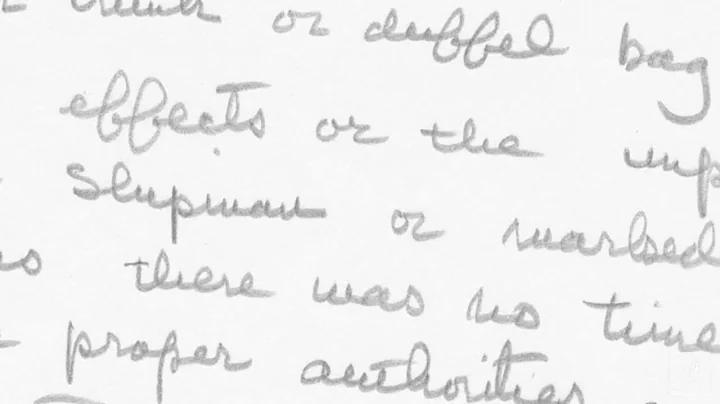 or duffel bag
effects or the
Shipman or marked
there was no time
proper authorities